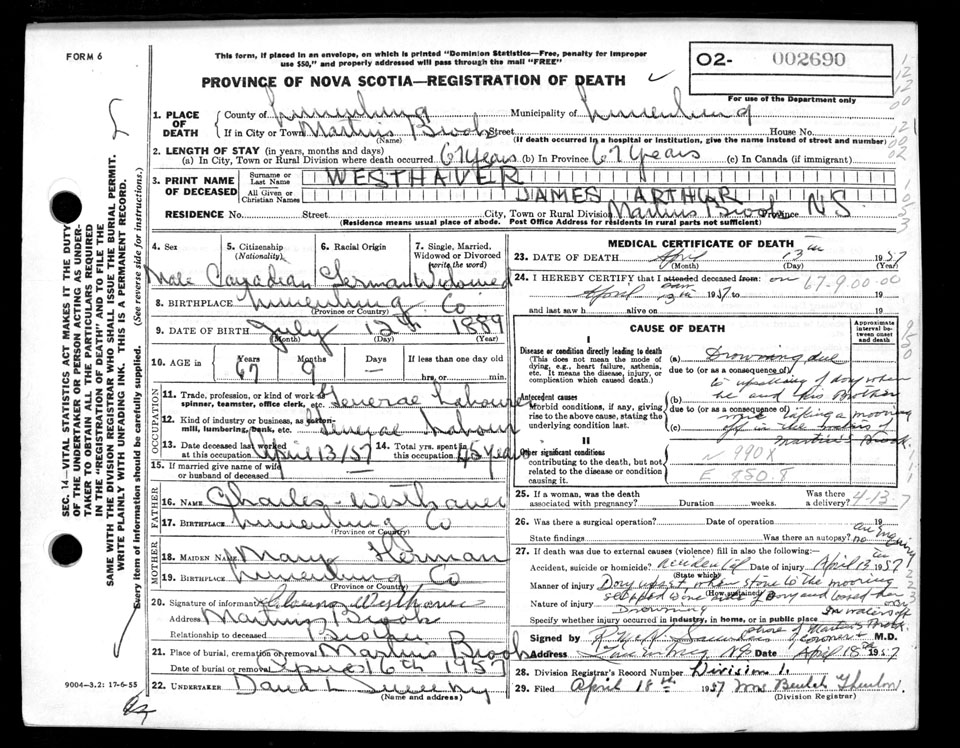 FORM 6
This form, if placed in an envelope, on which is printed "Dominion Statistics—Free, penalty for improper
use $50," and properly addressed will pass through the mail "FREE"
O2- 002690
For use of the Department only
PROVINCE OF NOVA SCOTIA—REGISTRATION OF DEATH
SEC. 14—VITAL STATISTICS ACT MAKES IT THE DUTY
OF THE UNDERTAKER OR PERSON ACTING AS UNDER-
TAKER TO OBTAIN ALL THE PARTICULARS REQUIRED
IN THE "REGISTRATION OF DEATH" AND TO FILE THE
SAME WITH THE DIVISION REGISTRAR WHO SHALL ISSUE THE BURIAL PERMIT.
WRITE PLAINLY WITH UNFADING INK. THIS IS A PERMANENT RECORD.
Every item of information should be carefully supplied. (See reverse side for instructions.)
1. PLACE OF DEATH County of Lunenburg Municipality of Lunenburg
If in City or Town Martins Brook Street House No.
(Name) (If death occurred in a hospital or institution, give the name instead of street and number)
2. LENGTH OF STAY (in years, months and days)
(a) In City, Town or Rural Division where death occurred 67 Years (b) In Province 67 Years (c) In Canada (if immigrant)
3. PRINT NAME OF DECEASED Surname or Last Name WESTHAVER
All Given or Christian Names JAMES ARTHUR
RESIDENCE No. Street City, Town or Rural Division Martins Brook Province NS
(Residence means usual place of abode. Post Office Address for residents in rural parts not sufficient)
4. Sex 5. Citizenship (Nationality) 6. Racial Origin 7. Single, Married, Widowed or Divorced (write the word)
Male Canadian German Widowed
8. BIRTHPLACE Lunenburg Co
(Province or Country)
9. DATE OF BIRTH July 12th 1889
(Month) (Day) (Year)
10. AGE in Years Months Days If less than one day old
67 9 — hrs. or min.
OCCUPATION
11. Trade, profession, or kind of work as spinner, teamster, office clerk, etc. General Labourer
12. Kind of industry or business, as cotton-mill, lumbering, bank, etc. General Labour
13. Date deceased last worked at this occupation April 13/57 14. Total yrs. spent in this occupation 45 years
15. If married give name of wife or husband of deceased —
FATHER
16. NAME Charles Westhaver
17. BIRTHPLACE Lunenburg Co
(Province or Country)
MOTHER
18. MAIDEN NAME Mary Herman
19. BIRTHPLACE Lunenburg Co
(Province or Country)
20. Signature of informant Westhaver
Address Martins Brook
Relationship to deceased Brother
21. Place of burial, cremation or removal Martins Brook
Date of burial or removal April 16th 1957
22. UNDERTAKER David L Sweeny
(Name and address)
9004-3.2: 17-6-55
MEDICAL CERTIFICATE OF DEATH
23. DATE OF DEATH April 13th 1957
(Month) (Day) (Year)
24. I HEREBY CERTIFY that I attended deceased from: on 67-9.00-00
saw
April 13th 1957 to 19
and last saw h alive on 19
CAUSE OF DEATH
Approximate interval between onset and death
I
Disease or condition directly leading to death
(This does not mean the mode of dying, e.g., heart failure, asthenia, etc. It means the disease, injury, or complication which caused death.)
(a) Drowning due
due to (or as a consequence of)
to upsetting of dory when
Antecedent causes
Morbid conditions, if any, giving rise to the above cause, stating the underlying condition last.
(b) he and his Brother
due to (or as a consequence of)
were taking a mooring
(c) off in the waters of
Martin's Brook
II
Other significant conditions contributing to the death, but not related to the disease or condition causing it.
N 990X
E 850.9
25. If a woman, was the death associated with pregnancy? Duration weeks. Was there a delivery? 4-13-7
26. Was there a surgical operation? Date of operation 19
State findings Was there an autopsy? no
27. If death was due to external causes (violence) fill in also the following:—
Accident, suicide or homicide? Accidental Date of injury April 13th 1957
(State which)
Manner of injury Dory upset when stone to the mooring
(How sustained)
slipped to one side of Dory and
Nature of injury Drowning
Specify whether injury occurred in industry, in home, or in public place In waters off
shore of Martins Brook
Signed by Coroner M.D.
Address Lunenburg NS Date April 18th 1957
28. Division Registrar's Record Number Division 1.
29. Filed April 18th 1957 Mrs Beulah
(Division Registrar)